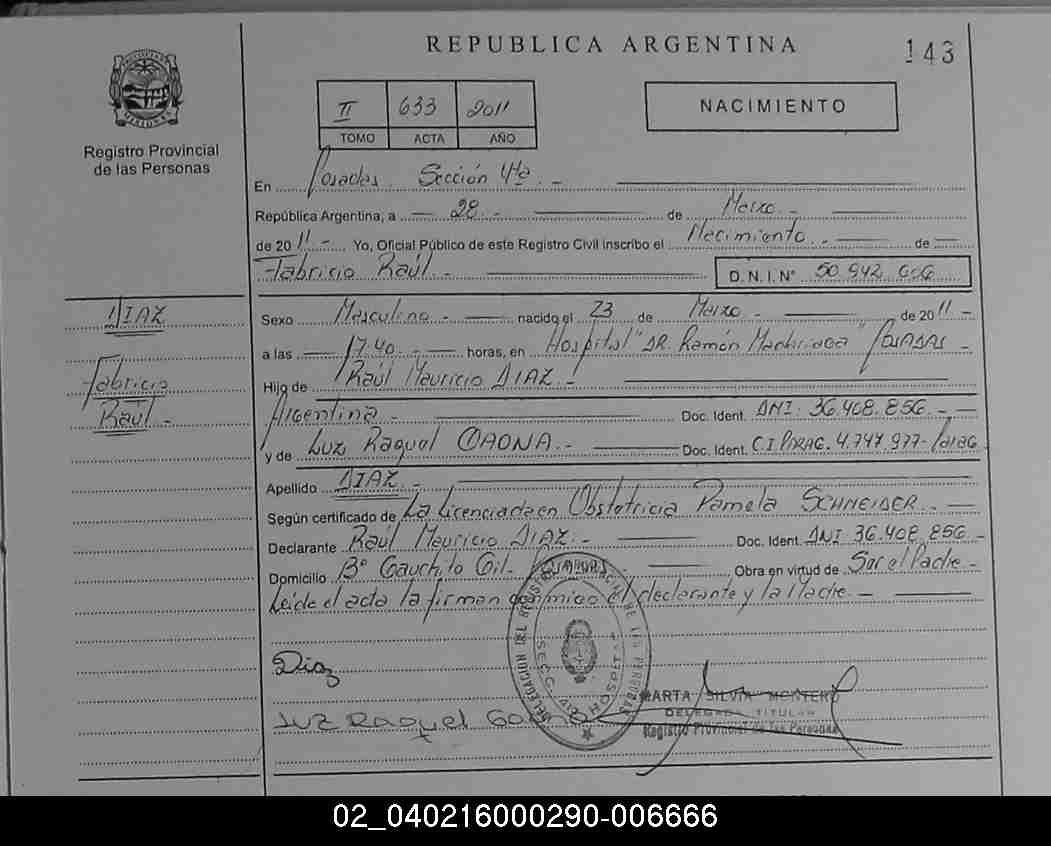 REPUBLICA ARGENTINA
143
MISIONES
Registro Provincial
de las Personas
II 633 2011
TOMO ACTA AÑO
NACIMIENTO
En Posadas. Sección 4ta. -
República Argentina, a — 28. - de Marzo. -
de 2011 - Yo, Oficial Público de este Registro Civil inscribo el Nacimiento. - de —
Fabricio Raúl. - D.N.I.Nº 50.942.
DIAZ
Fabricio
Raúl. -
Sexo Masculino - nacido el 23 de Marzo - de 2011 -
a las — 17.40. - horas, en Hospital "DR. Ramón Madariaga" POSADAS -
Hijo de Raúl Mauricio DIAZ. -
Argentina - Doc. Ident. DNI: 36.408.856. -
y de Luz Raquel GAONA. - Doc. Ident. C I PARAG. 4.747.977- Parag
Apellido DIAZ. -
Según certificado de La Licenciada en Obstetricia Pamela SCHNEIDER. -
Declarante Raúl Mauricio DIAZ. - Doc. Ident. DNI 36.408.856. -
Domicilio Bº Gauchito Gil. Obra en virtud de Ser el Padre -
Leída el acta la firman conmigo el declarante y la Madre. -
DELEGACION DEL REGISTRO PROVINCIAL DE LAS PERSONAS
HOSPITAL
Diaz
Luz Raquel Gaona
MARTA SILVIA MONTERO
DELEGADA TITULAR
Registro Provincial de las Personas
02_040216000290-006666